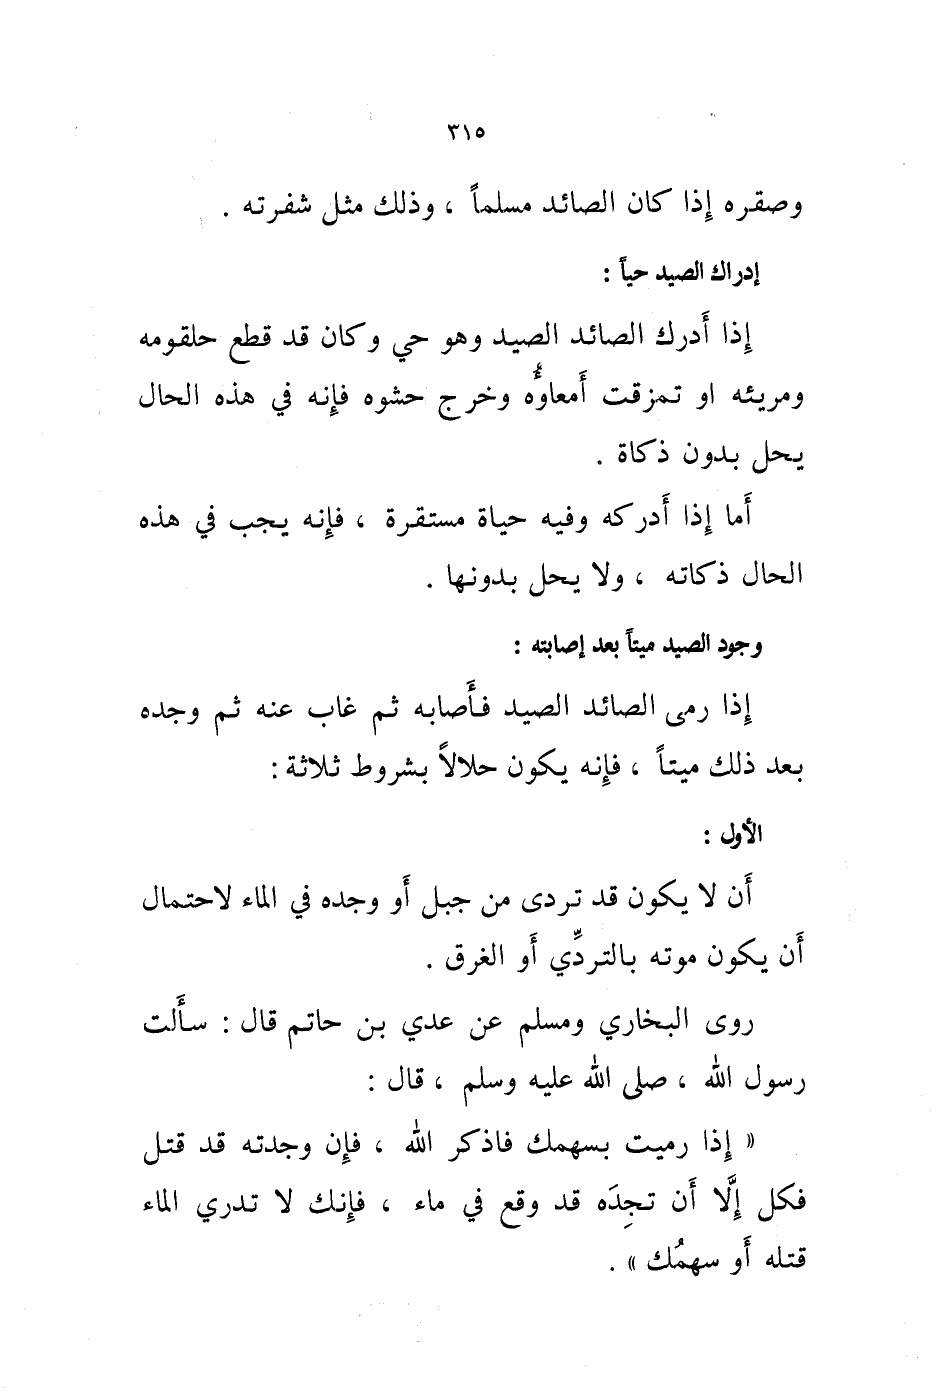 ٣١٥
وصقره إذا كان الصائد مسلماً ، وذلك مثل شفرته .
إدراك الصيد حياً :
إذا أدرك الصائد الصيد وهو حي وكان قد قطع حلقومه
ومريئه او تمزقت أمعاوُّه وخرج حشوه فإنه في هذه الحال
يحل بدون ذكاة .
أما إذا أدركه وفيه حياة مستقرة ، فإنه يجب في هذه
الحال ذكاته ، ولا يحل بدونها .
وجود الصيد ميتاً بعد إصابته :
إذا رمى الصائد الصيد فأصابه ثم غاب عنه ثم وجده
بعد ذلك ميتاً ، فإنه يكون حلالاً بشروط ثلاثة :
الأول :
أن لا يكون قد تردى من جبل أو وجده في الماء لاحتمال
أن يكون موته بالتردِّي أو الغرق .
روى البخاري ومسلم عن عدي بن حاتم قال : سألت
رسول الله ، صلى الله عليه وسلم ، قال :
« إذا رميت بسهمك فاذكر الله ، فإن وجدته قد قتل
فكل إلَّا أن تجِدَه قد وقع في ماء ، فإنك لا تدري الماء
قتله أو سهمُك » .